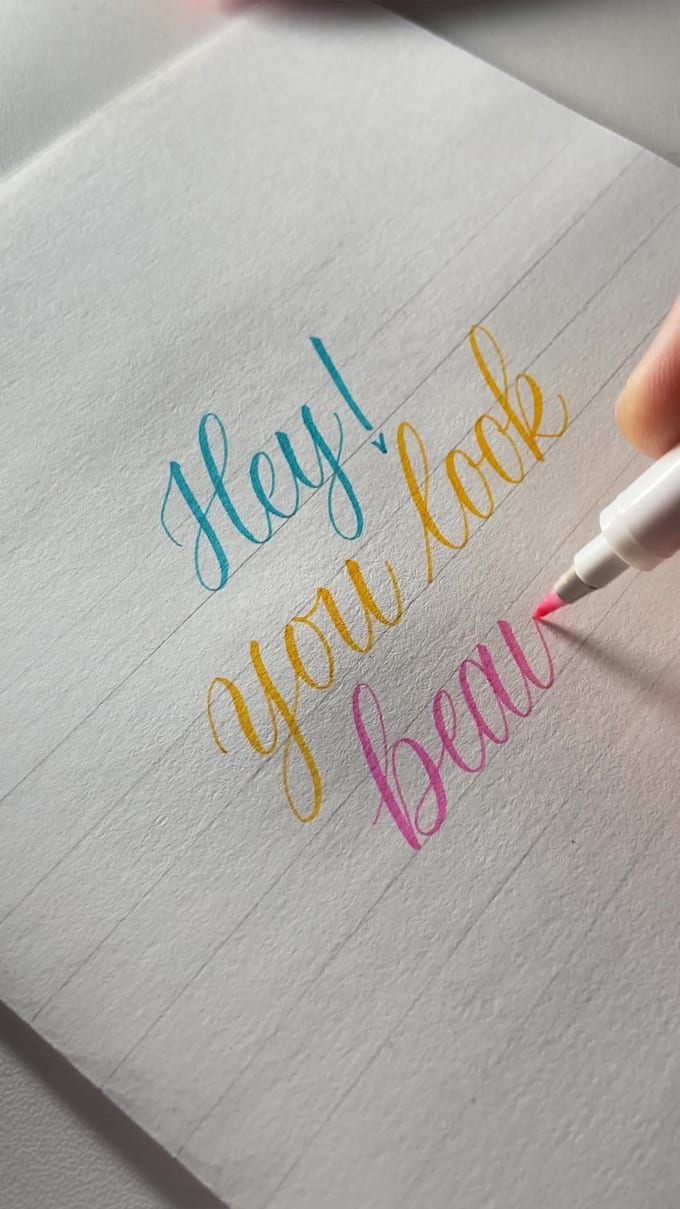 Hey!
you look
beau